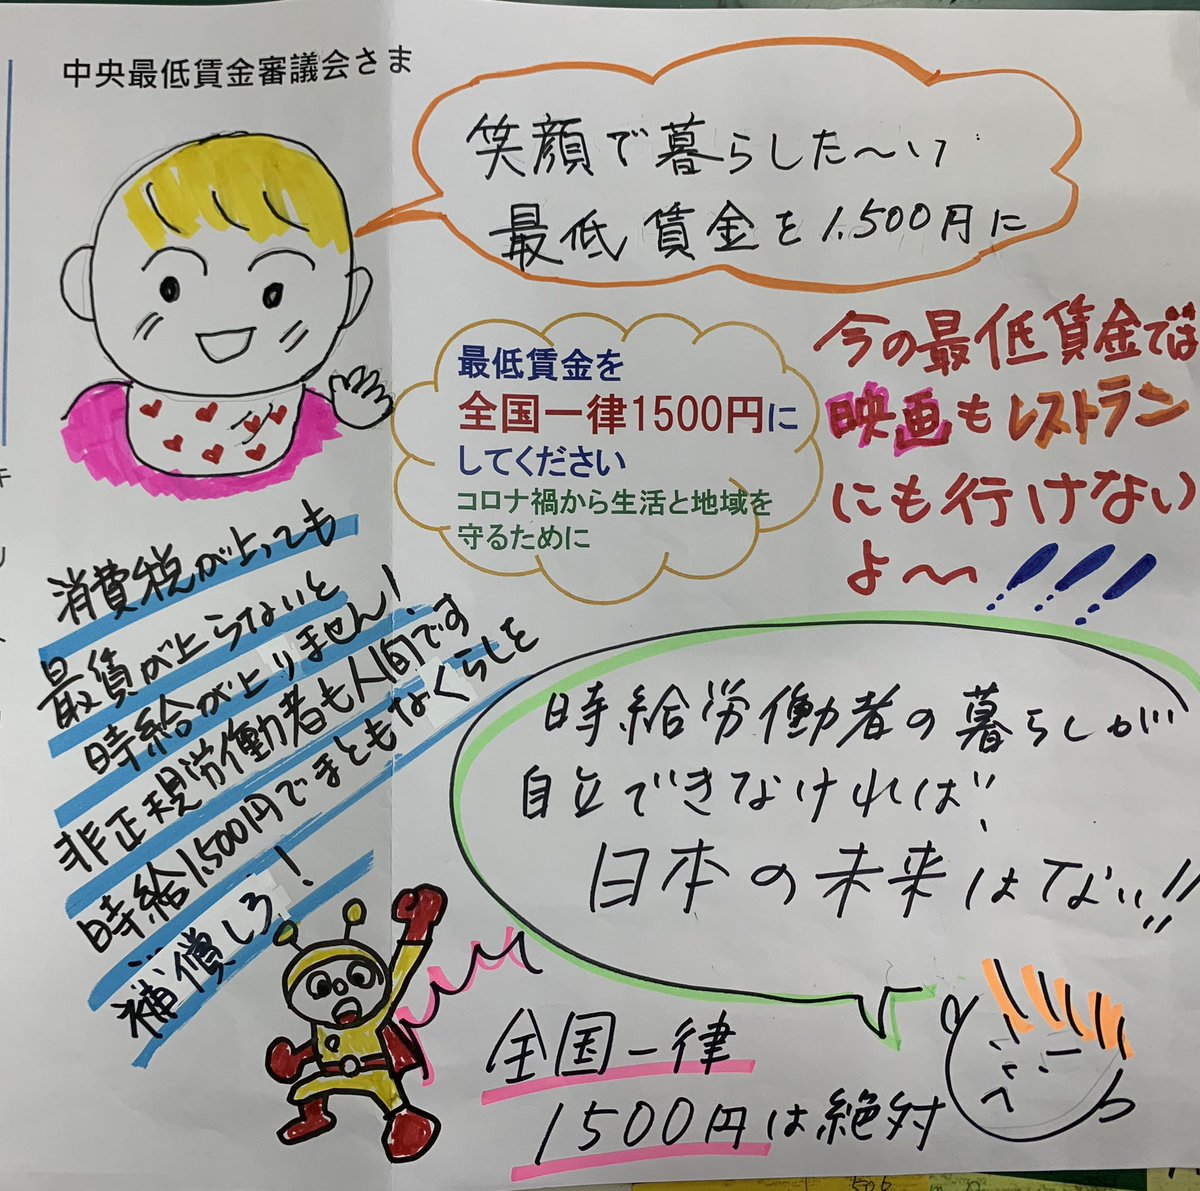 中央最低賃金審議会さま
笑顔で暮らした〜い
最低賃金を1.500円に
最低賃金を
全国一律1500円に
してください
コロナ禍から生活と地域を
守るために
今の最低賃金では
映画もレストラン
にも行けない
よ〜!!!
消費税が上っても
最賃が上らないと
時給が上りません!
非正規労働者も人間です
時給1.500円でまともなくらしを
補償しろ!
時給労働者の暮らしが
自立できなければ、
日本の未来はない!!
全国一律
1500円は絶対